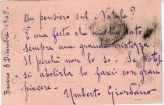 Genova 8 Dicembre 1903.
Un pensiero sul Natale?
È una festa che mi ha fatto
sempre una grande tristezza.
Il perché non lo so. Se potessi
si abolirla lo farei con gran
piacere.
Umberto Giordano